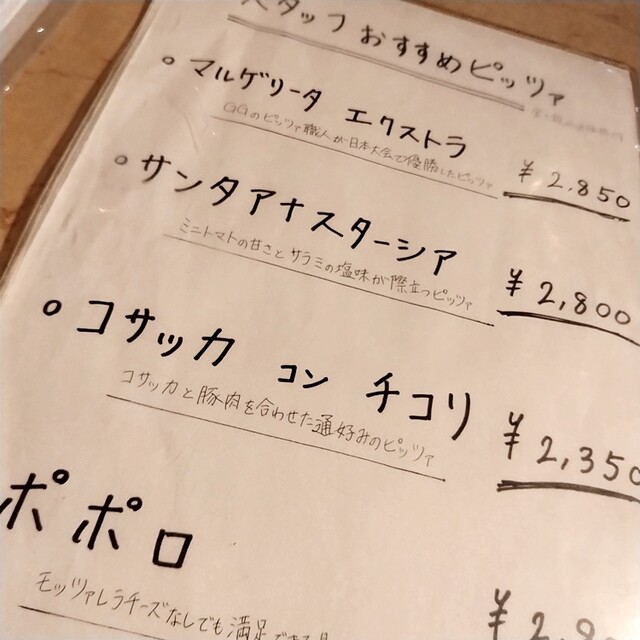 スタッフ おすすめ ピッツァ
マルゲリータ エクストラ
GGのピッツァ職人が日本大会で優勝したピッツァ
¥2,850
サンタアナスターシア
ミニトマトの甘さとサラミの塩味が際立つピッツァ
¥2,800
コサッカ コン チコリ
コサッカと豚肉を合わせた通好みのピッツァ
¥2,350
ポポロ
モッツァレラチーズなしでも満足できる
¥2,